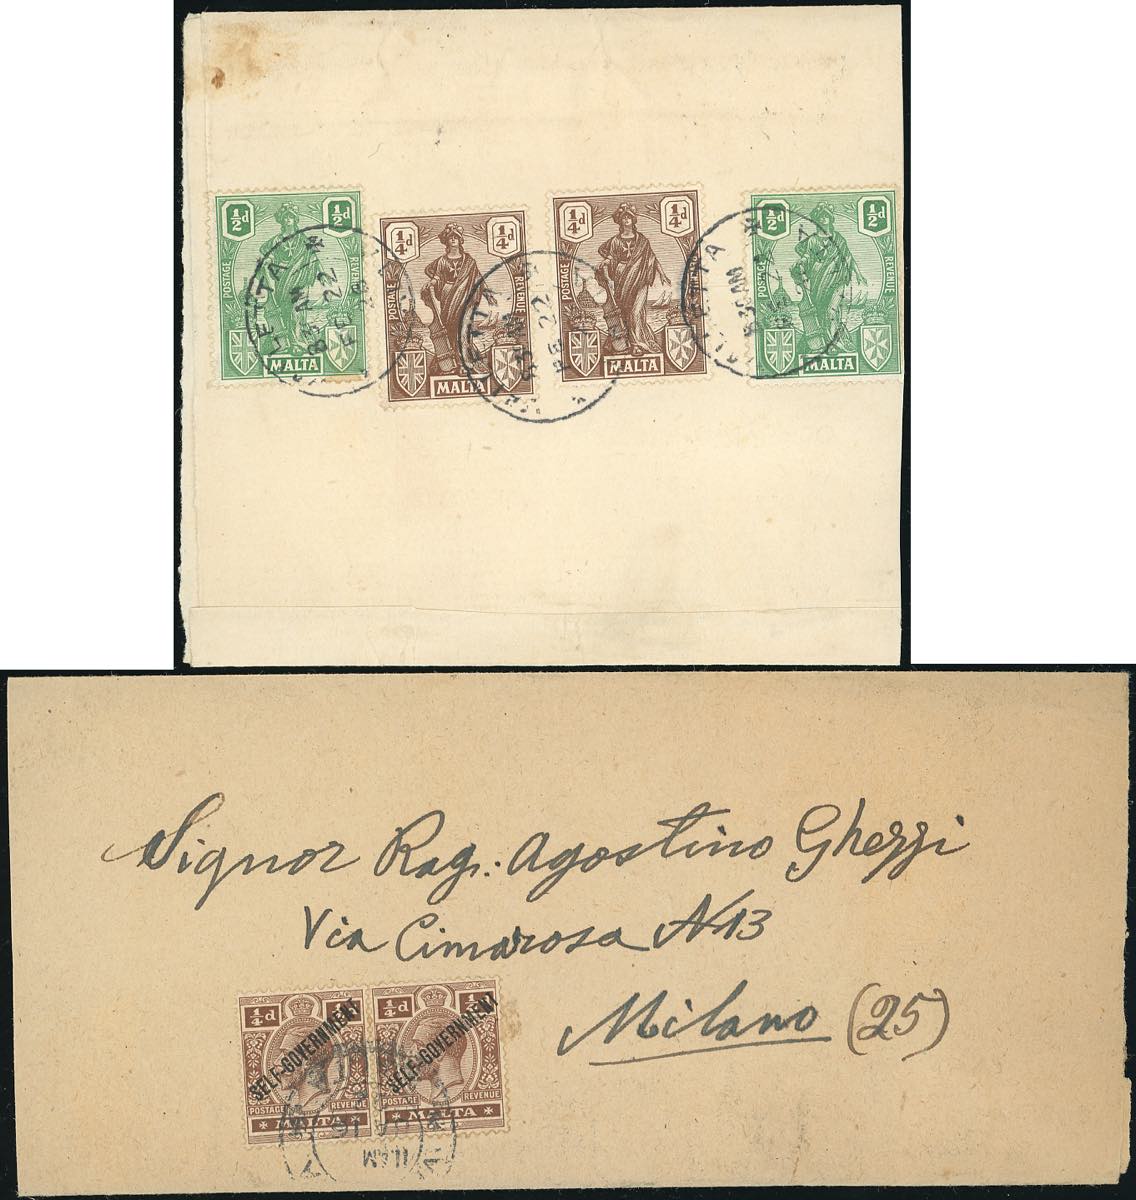 ½d ½d
POSTAGE REVENUE
MALTA
¼d ¼d
POSTAGE REVENUE
MALTA
¼d ¼d
POSTAGE REVENUE
MALTA
½d ½d
POSTAGE REVENUE
MALTA
VALLETTA
AM
FE 22
FE 22
VALLETTA
AM
Signor Rag. Agostino Ghezzi
Via Cimarosa N 13
Milano (25)
¼d
SELF-GOVERNMENT
POSTAGE REVENUE
MALTA
¼d
SELF-GOVERNMENT
POSTAGE REVENUE
MALTA
11 AM